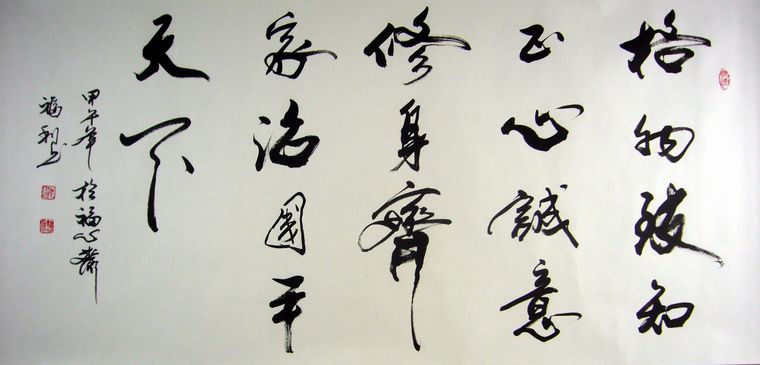 格物致知
正心誠意
修身齊
家治國平
天下
甲午年於福心齋
福利书